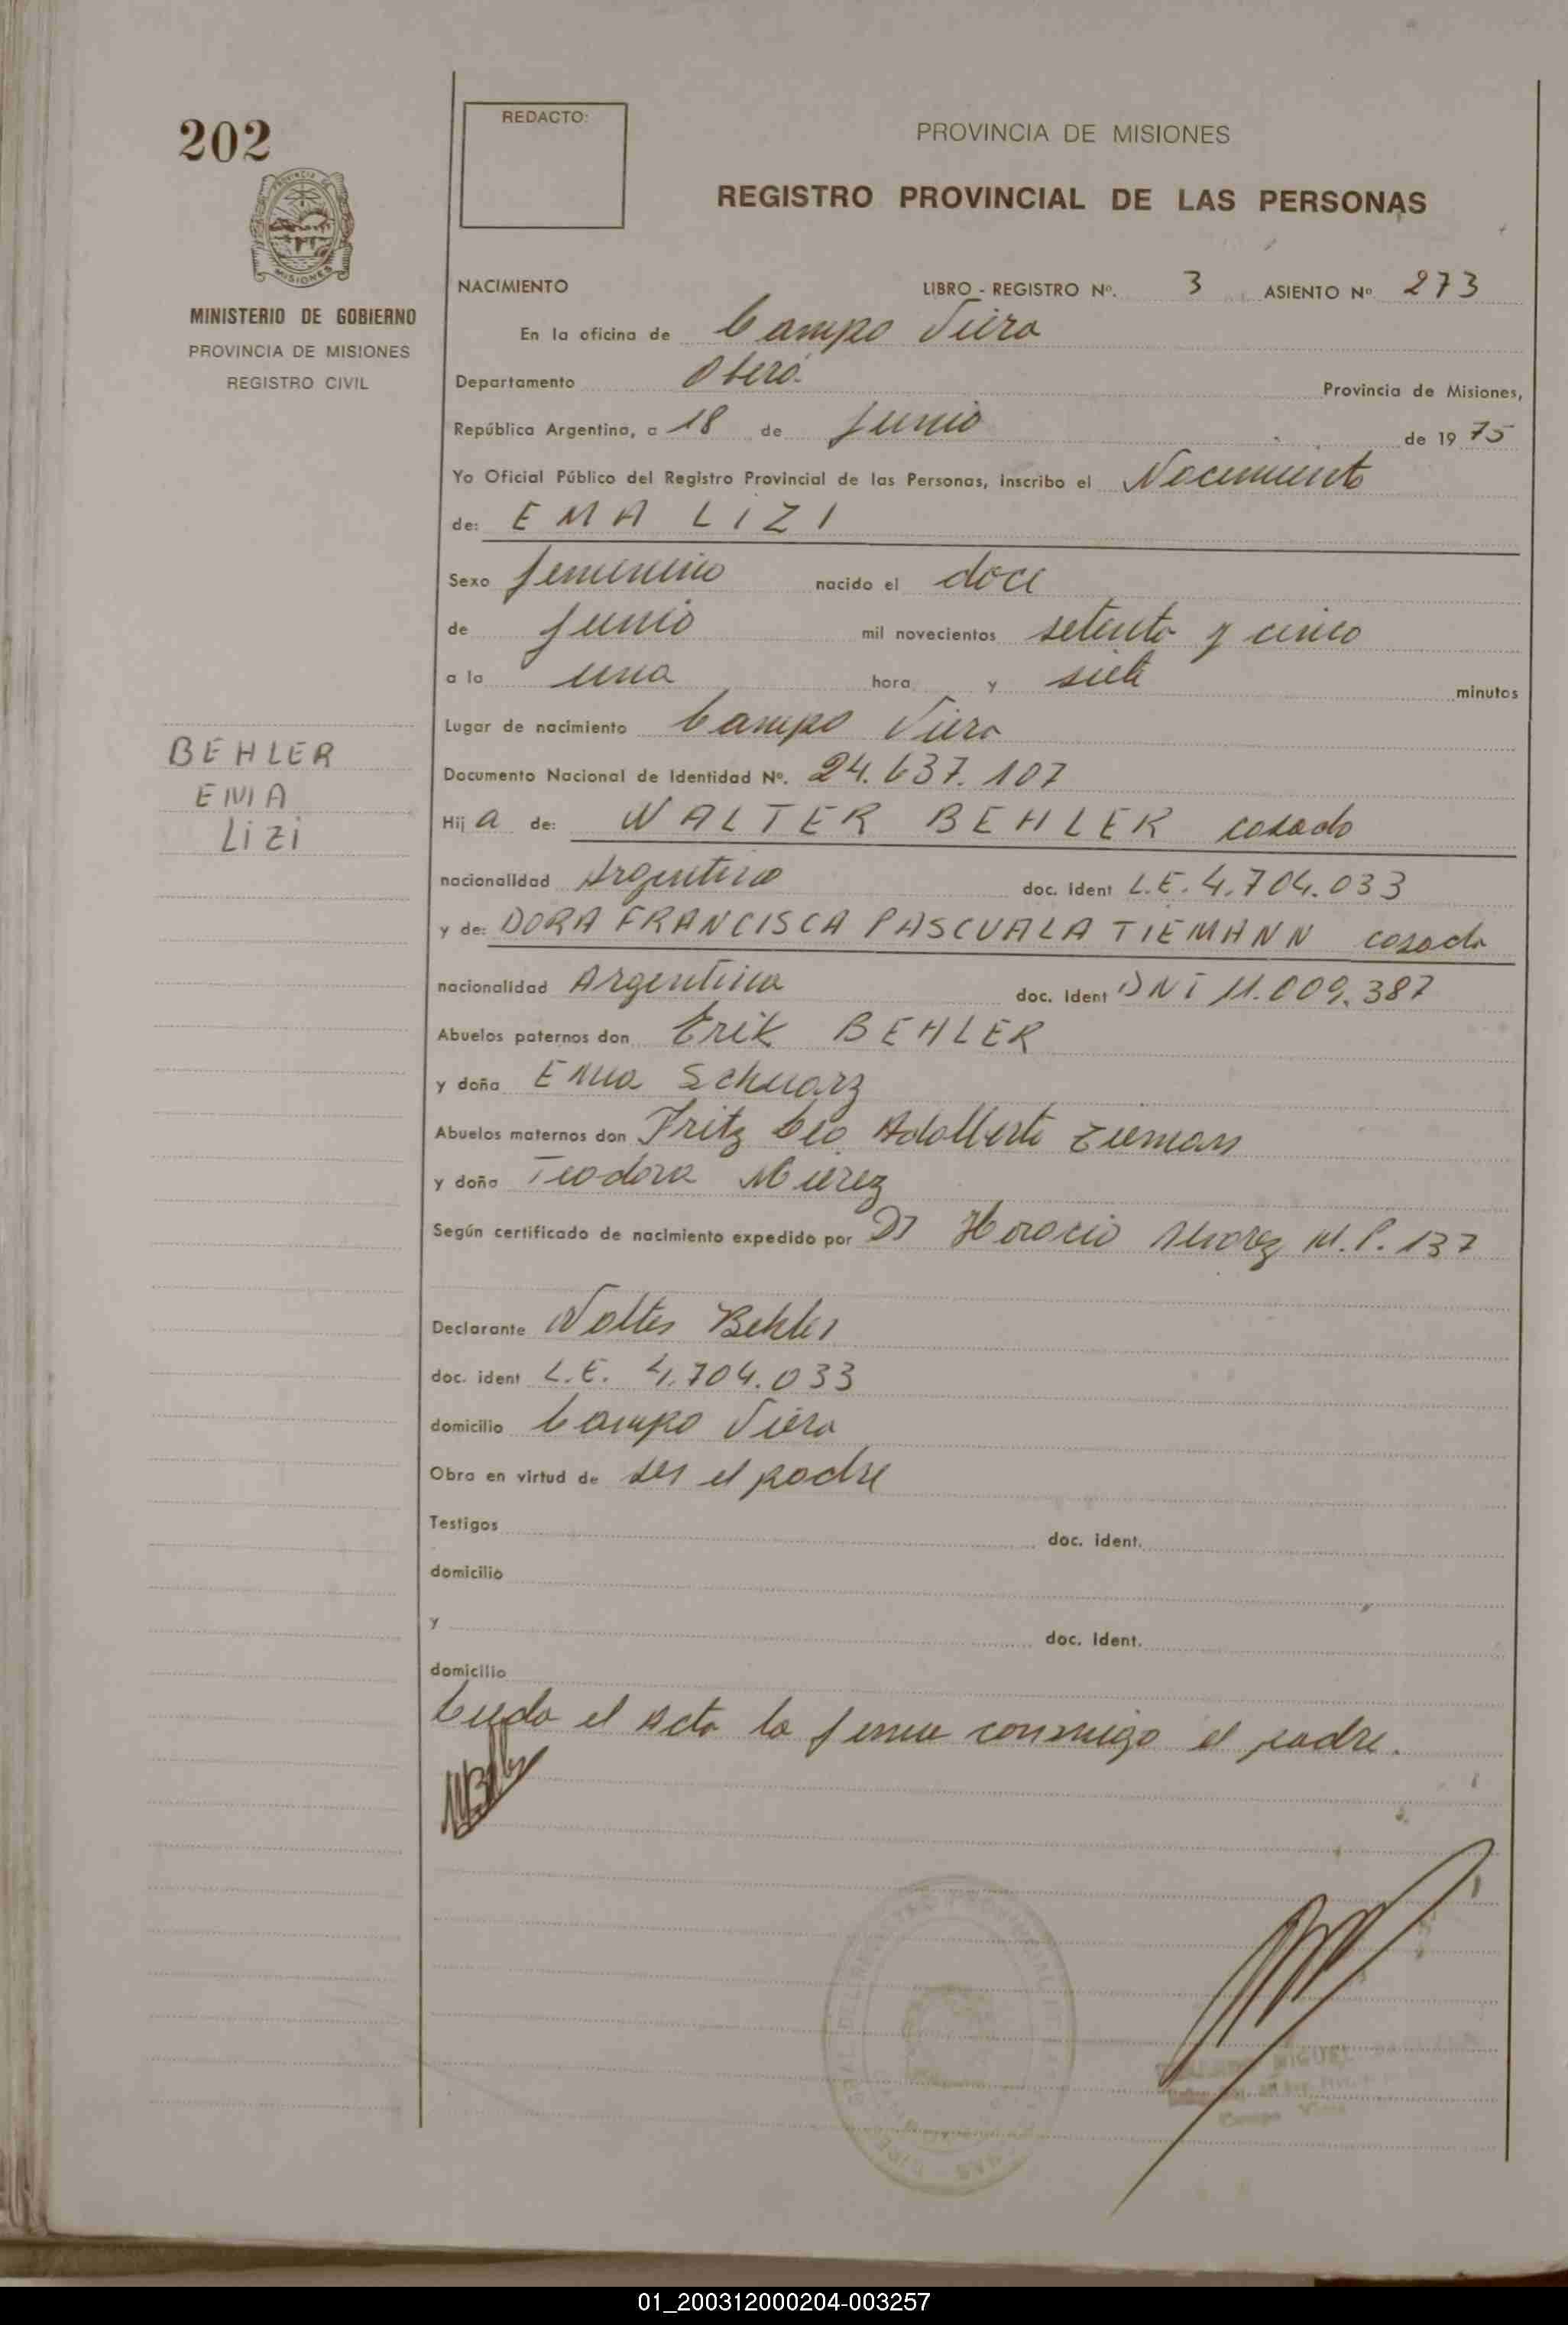 202
REDACTO:
PROVINCIA DE MISIONES
REGISTRO PROVINCIAL DE LAS PERSONAS
PROVINCIA DE
MISIONES
MINISTERIO DE GOBIERNO
PROVINCIA DE MISIONES
REGISTRO CIVIL
NACIMIENTO LIBRO - REGISTRO Nº. 3 ASIENTO Nº 273
En la oficina de Campo Viera
Departamento Oberá Provincia de Misiones,
República Argentina, a 18 de Junio de 1975
Yo Oficial Público del Registro Provincial de las Personas, inscribo el Nacimiento
de: EMA LIZI
Sexo femenino nacido el doce
de Junio mil novecientos setenta y cinco
a la una hora y siete minutos
Lugar de nacimiento Campo Viera
BEHLER
EMA
LiZi
Documento Nacional de Identidad Nº. 24.637.107
Hij a de: WALTER BEHLER casado
nacionalidad Argentina doc. ident L.E. 4.704.033
y de: DORA FRANCISCA PASCUALA TIEMANN casada
nacionalidad Argentina doc. Ident DNI 11.009.387
Abuelos paternos don Erik BEHLER
y doña Ema Schuarz
Abuelos maternos don Fritz Adalberto Tiemann
y doña Teodora
Según certificado de nacimiento expedido por Dr Horacio Alvarez M.P. 137
Declarante Walter Behler
doc. ident L.E. 4.704.033
domicilio Campo Viera
Obra en virtud de ser el padre
Testigos doc. ident.
domicilio
y doc. Ident.
domicilio
Leida el acta la firma conmigo el padre.
MIGUEL
Campo Viera
01_200312000204-003257